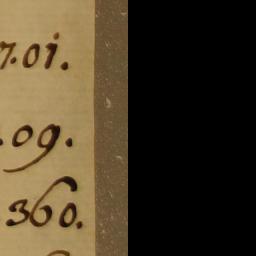 7.01.
.09.
360.